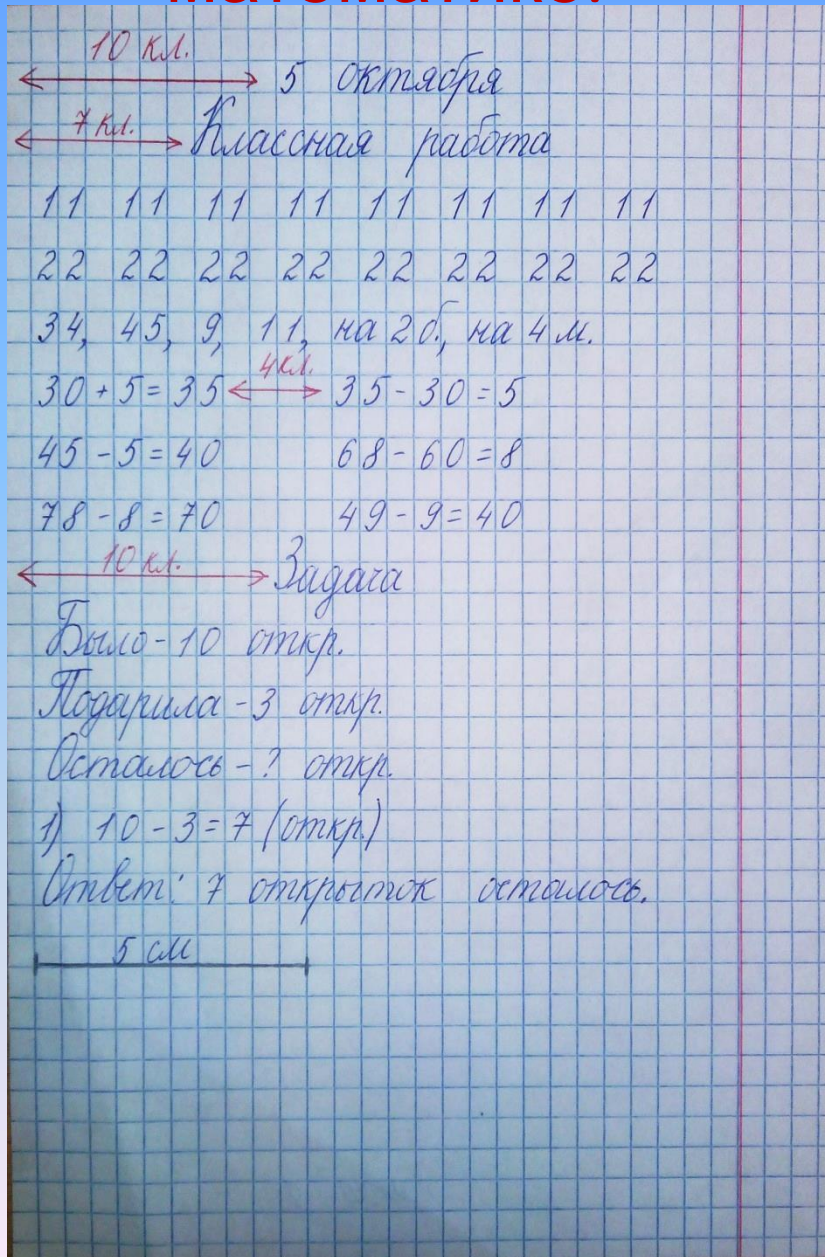 10 кл.
5 октября
7 кл.
Классная работа
11 11 11 11 11 11 11 11
22 22 22 22 22 22 22 22
34, 45, 9, 11, на 2 б., на 4 м.
4 кл.
30 + 5 = 35 35 - 30 = 5
45 - 5 = 40 68 - 60 = 8
78 - 8 = 70 49 - 9 = 40
10 кл.
Задача
Было - 10 откр.
Подарила - 3 откр.
Осталось - ? откр.
1) 10 - 3 = 7 (откр.)
Ответ: 7 открыток осталось.
5 см